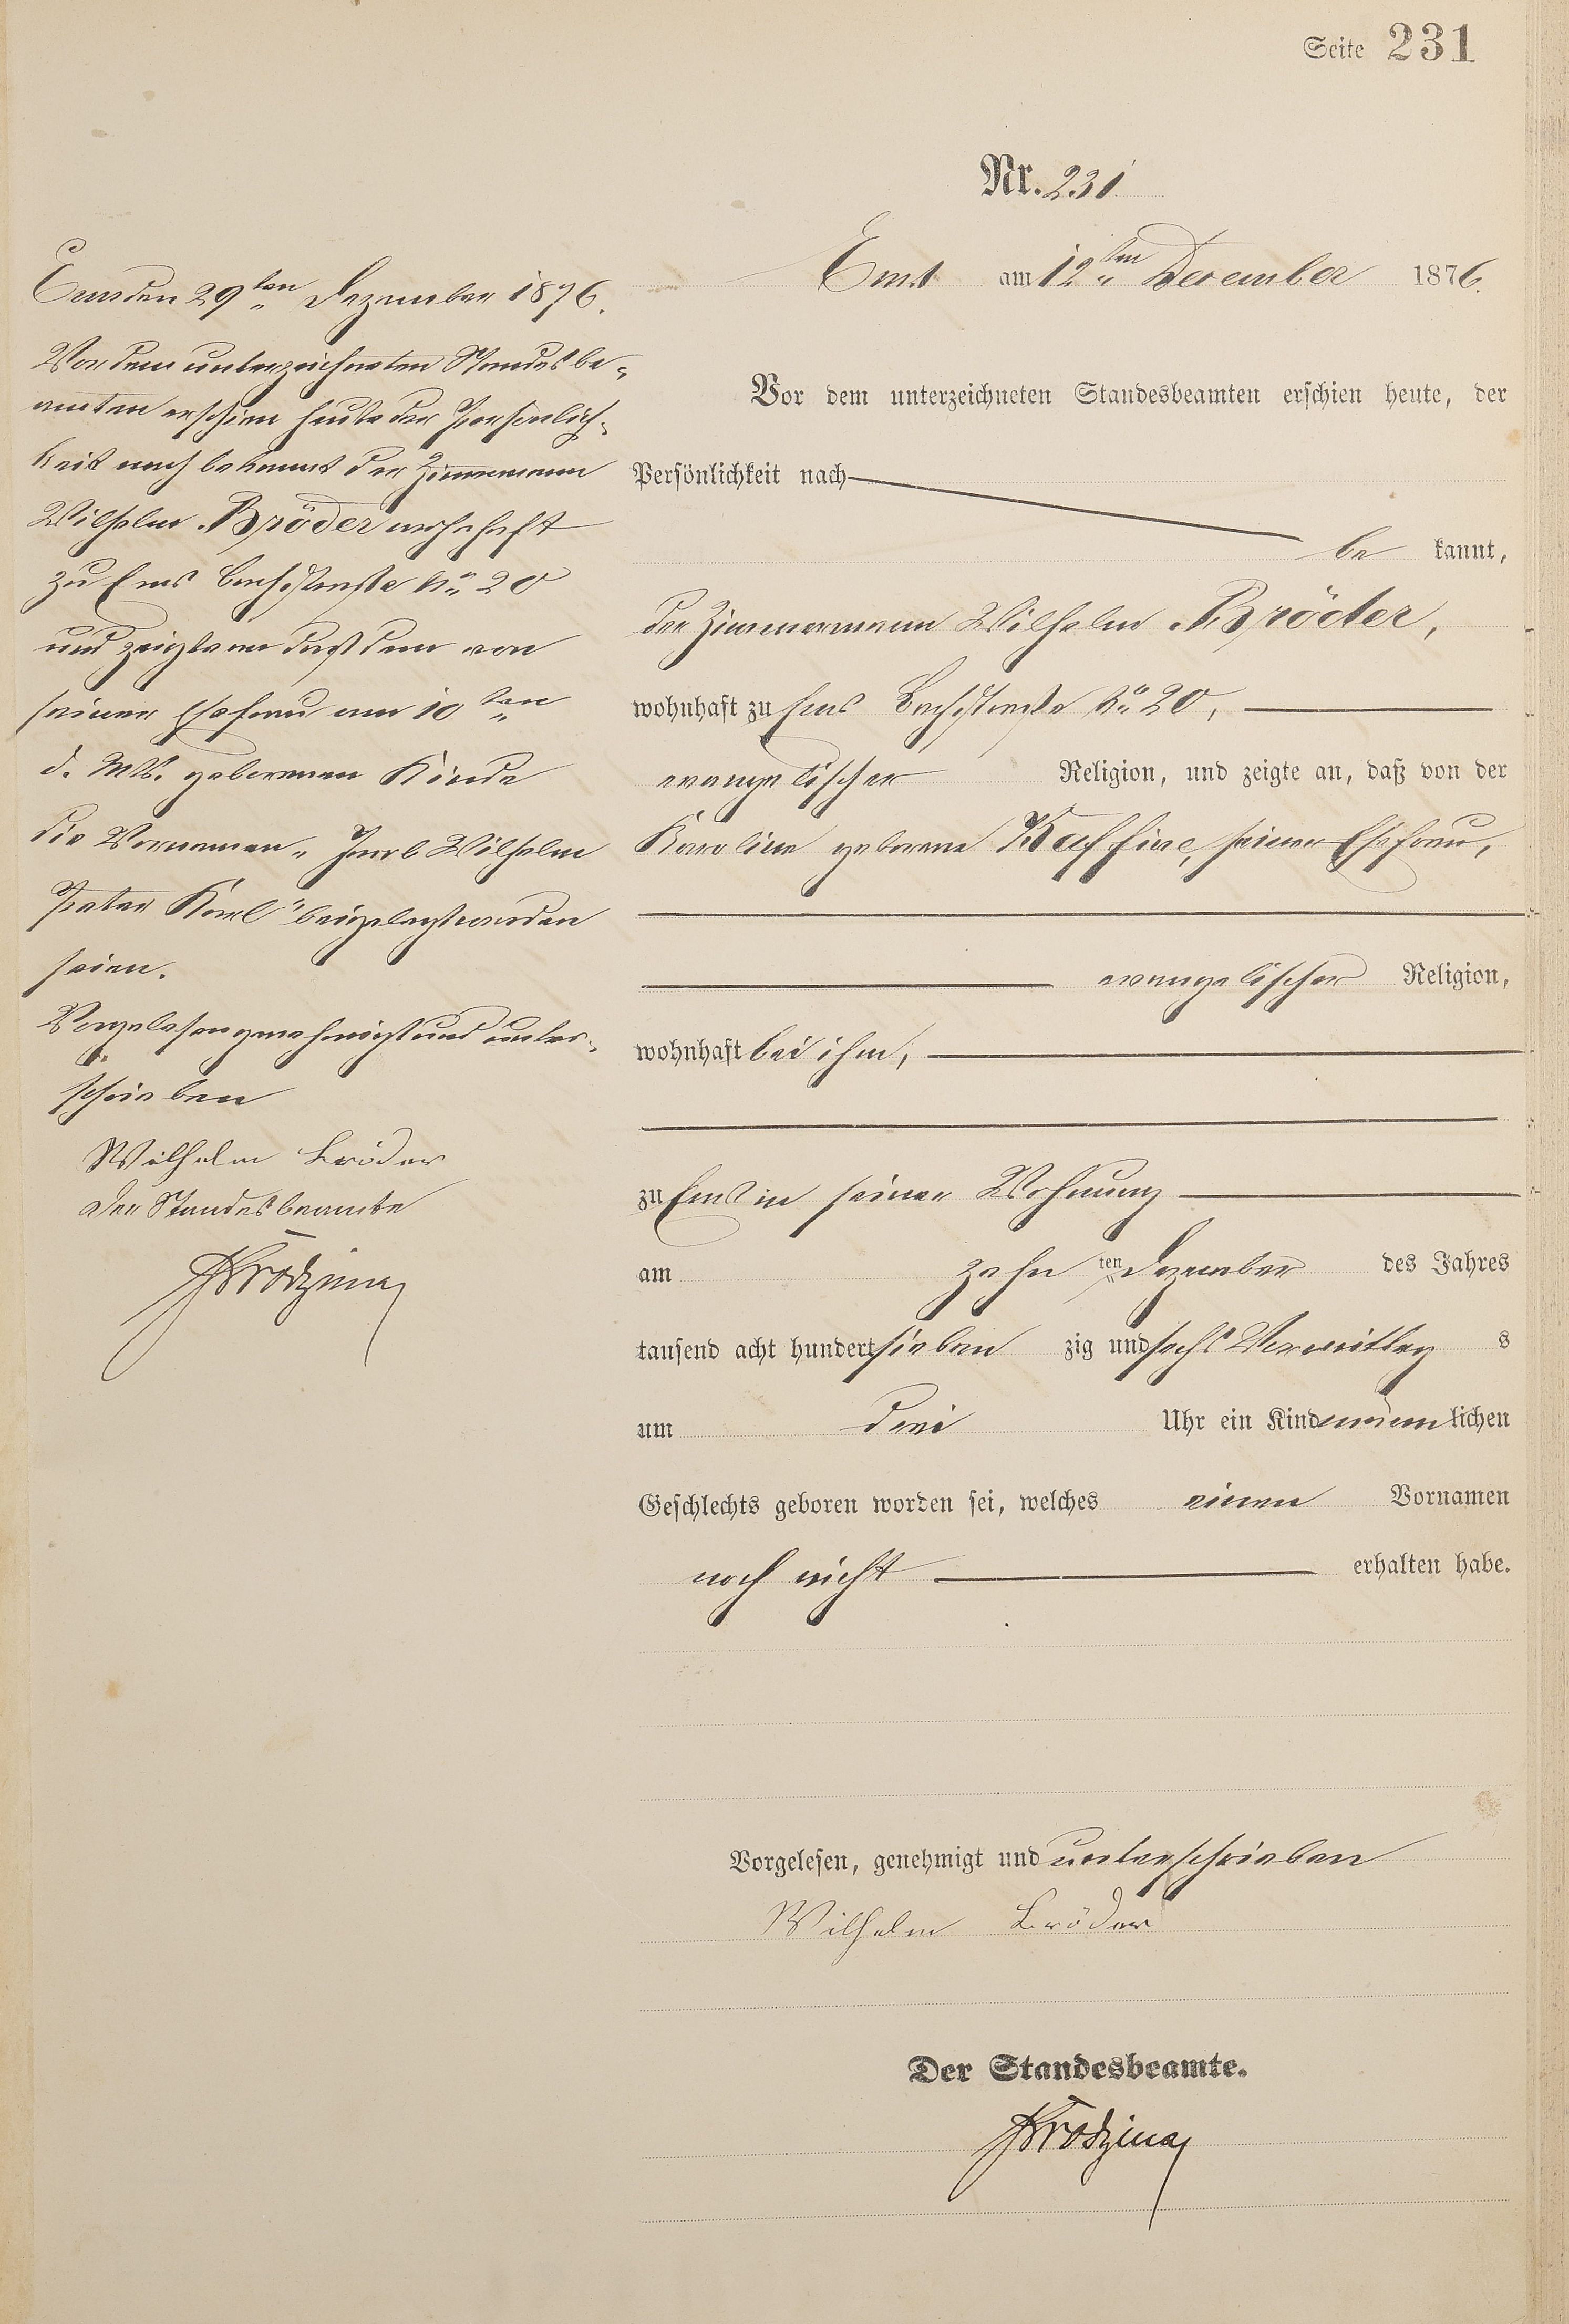 Seite 231
Nr. 231
Ems am 12ten December 1876.
Vor dem unterzeichneten Standesbeamten erschien heute, der
Persönlichkeit nach
be kannt,
der Zimmermann Wilhelm Bröder,
wohnhaft zu Ems Bachstraße No 20,
evangelischer Religion, und zeigte an, daß von der
Karoline geborene Kaffine, seiner Ehefrau,
evangelischer Religion,
wohnhaft bei ihm,
zu Ems in seiner Wohnung
am zehn ten Dezember des Jahres
tausend acht hundert sieben zig und sechs Vormittag s
um drei Uhr ein Kind männlichen
Geschlechts geboren worden sei, welches einen Vornamen
noch nicht erhalten habe.
Vorgelesen, genehmigt und unterschrieben
Wilhelm Bröder
Der Standesbeamte.
Ems den 29ten Dezember 1876.
Vor dem unterzeichneten Standesbe-
amten erschien heute der Persönlich-
keit nach bekannt der Zimmermann
Wilhelm Bröder wohnhaft
zu Ems Bachstraße No 20
und zeigte an daß dem von
seiner Ehefrau am 10ten
d. Mts. geborenen Kinde
die Vornamen „Wilhelm
Peter Karl“ beigelegt worden
seien.
Vorgelesen genehmigt und unter-
schrieben
Wilhelm Bröder
Der Standesbeamte